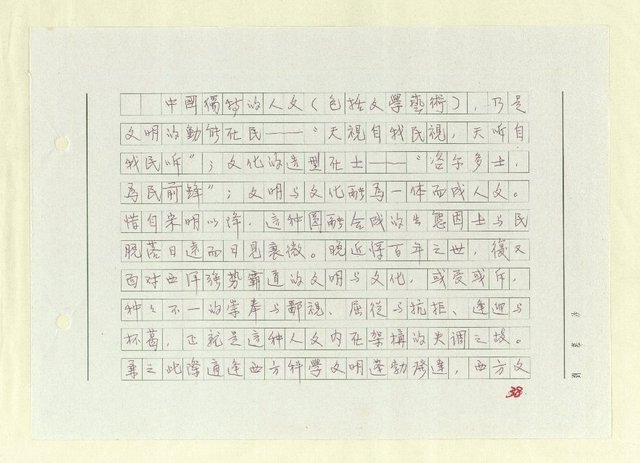 中國獨特的人文(包括文學藝術)，乃是
文明的動能在民——“天視自我民視，天听自
我民听”；文化的造型在士——“咨尔多士，
為民前鋒”；文明与文化融為一体而成人文。
惜自宋明以降，这种圓融合成的生態因士与民
脱落日遠而日見衰微。晚近浮百年之世，復又
面对西洋强势霸道的文明与文化，或受或斥，
种々不一的崇奉与鄙視、屈從与抗拒、逢迎与
杯葛，正就是这种人文内在架構的失调之故。
兼之此際適逢西方科學文明蓬勃發達，西方文
38